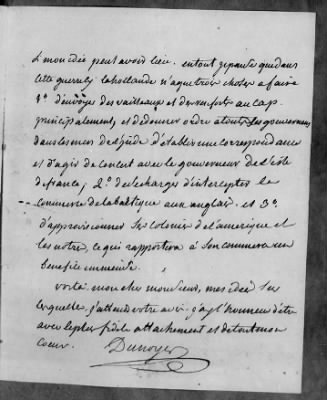 & mon idée peut avoir lieu. entout je pense que dans
cette guerre cy la hollande n'a que trois choses a faire
1° d'envoyer des vaisseaux et des renforts au cap
principalement, et de donner ordre a tous ses gouverneurs
dans les mers de l'inde d'établir une correspondance
et d'agir de concert avec le gouverneur de l'isle
de france, 2° de se charger d'intercepter le
commerce de la baltique aux anglais. et 3°
d'approvisionner ses colonies de l'amerique et
les notres, ce qui rapportera a son commerce un
benefice immense.
voila mon cher monsieur, mes idées sur
lesquelles j'attends votre avis. j'ay l'honneur d'être
avec le plus fidele attachement et de tout mon
coeur. Dunoyer